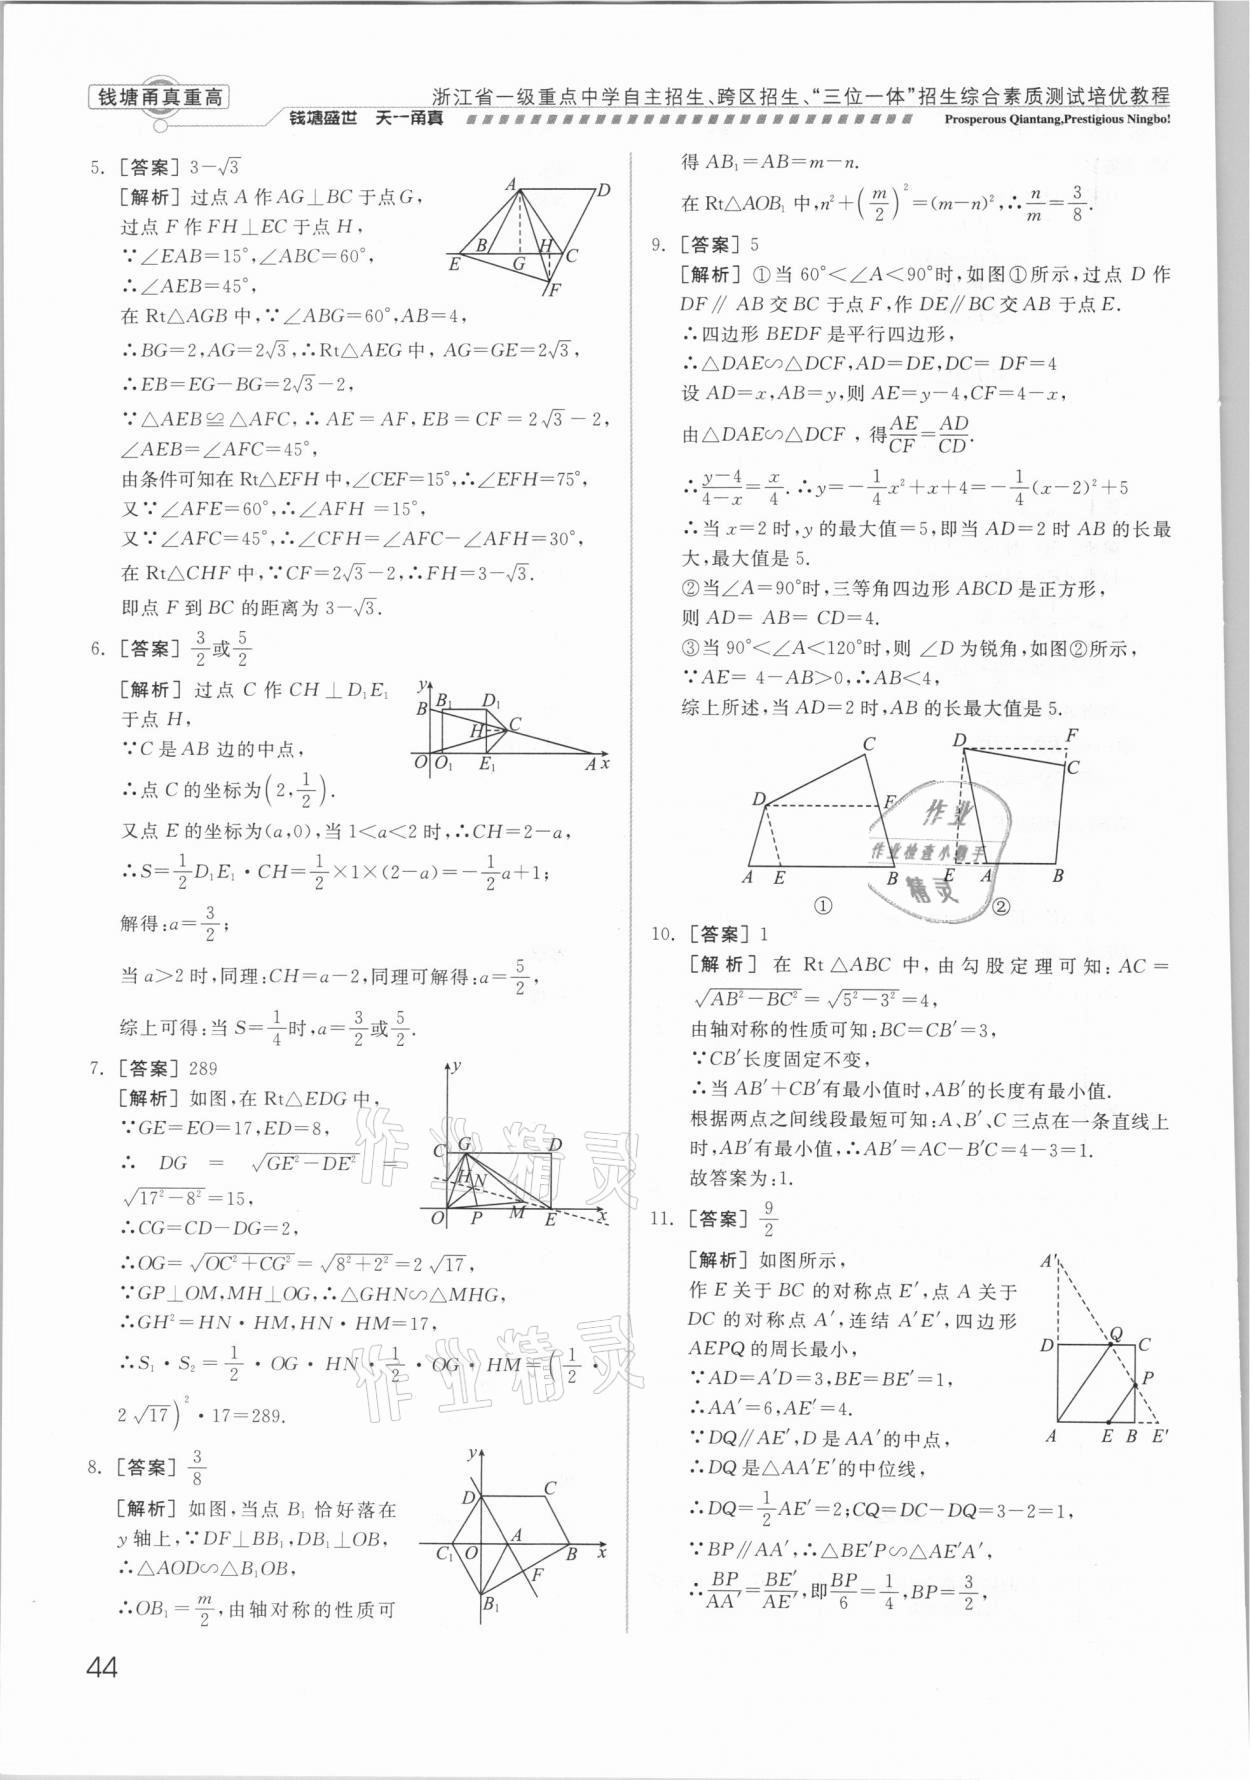 钱塘甬真重高
浙江省一级重点中学自主招生、跨区招生、“三位一体”招生综合素质测试培优教程
钱塘盛世 天一甬真
Prosperous Qiantang,Prestigious Ningbo!
5. [答案] 3-√3
[解析] 过点 A 作 AG⊥BC 于点 G,
过点 F 作 FH⊥EC 于点 H,
∵∠EAB=15°,∠ABC=60°,
∴∠AEB=45°,
在 Rt△AGB 中,∵∠ABG=60°,AB=4,
∴BG=2,AG=2√3,∴Rt△AEG 中, AG=GE=2√3,
∴EB=EG-BG=2√3-2,
∵△AEB≌△AFC,∴AE=AF,EB=CF=2√3-2,
∠AEB=∠AFC=45°,
由条件可知在 Rt△EFH 中,∠CEF=15°,∴∠EFH=75°,
又∵∠AFE=60°,∴∠AFH =15°,
又∵∠AFC=45°,∴∠CFH=∠AFC-∠AFH=30°,
在 Rt△CHF 中,∵CF=2√3-2,∴FH=3-√3.
即点 F 到 BC 的距离为 3-√3.
A D E B G H C F
6. [答案] 3/2 或 5/2
[解析] 过点 C 作 CH⊥D₁E₁
于点 H,
∵C 是 AB 边的中点,
∴点 C 的坐标为(2,1/2).
又点 E 的坐标为(a,0),当 1<a<2 时,∴CH=2-a,
∴S=1/2 D₁E₁·CH=1/2×1×(2-a)=-1/2 a+1;
解得:a=3/2;
当 a>2 时,同理:CH=a-2,同理可解得:a=5/2,
综上可得:当 S=1/4 时,a=3/2 或 5/2.
y B B₁ D₁ H C O O₁ E₁ A x
7. [答案] 289
[解析] 如图,在 Rt△EDG 中,
∵GE=EO=17,ED=8,
∴ DG = √(GE²-DE²) =
√(17²-8²)=15,
∴CG=CD-DG=2,
∴OG=√(OC²+CG²)=√(8²+2²)=2√17,
∵GP⊥OM,MH⊥OG,∴△GHN∽△MHG,
∴GH²=HN·HM,HN·HM=17,
∴S₁·S₂=1/2·OG·HN·1/2·OG·HM=(1/2·
2√17)²·17=289.
y C G D H N M O P E x
8. [答案] 3/8
[解析] 如图,当点 B₁ 恰好落在
y 轴上,∵DF⊥BB₁,DB₁⊥OB,
∴△AOD∽△B₁OB,
∴OB₁=m/2,由轴对称的性质可
y D C C₁ O A B x F B₁
44
得 AB₁=AB=m-n.
在 Rt△AOB₁ 中,n²+(m/2)²=(m-n)²,∴n/m=3/8.
9. [答案] 5
[解析] ①当 60°<∠A<90°时,如图①所示,过点 D 作
DF∥AB 交 BC 于点 F,作 DE∥BC 交 AB 于点 E.
∴四边形 BEDF 是平行四边形,
∴△DAE∽△DCF,AD=DE,DC= DF=4
设 AD=x,AB=y,则 AE=y-4,CF=4-x,
由△DAE∽△DCF ,得 AE/CF=AD/CD.
∴(y-4)/(4-x)=x/4.∴y=-1/4 x²+x+4=-1/4(x-2)²+5
∴当 x=2 时,y 的最大值=5,即当 AD=2 时 AB 的长最
大,最大值是 5.
②当∠A=90°时,三等角四边形 ABCD 是正方形,
则 AD= AB= CD=4.
③当 90°<∠A<120°时,则 ∠D 为锐角,如图②所示,
∵AE= 4-AB>0,∴AB<4,
综上所述,当 AD=2 时,AB 的长最大值是 5.
C D F A E B ①
D F C E A B ②
作业
作业检查小帮手
精灵
10. [答案] 1
[解析] 在 Rt△ABC 中,由勾股定理可知:AC=
√(AB²-BC²)=√(5²-3²)=4,
由轴对称的性质可知:BC=CB′=3,
∵CB′长度固定不变,
∴当 AB′+CB′有最小值时,AB′的长度有最小值.
根据两点之间线段最短可知:A、B′、C 三点在一条直线上
时,AB′有最小值,∴AB′=AC-B′C=4-3=1.
故答案为:1.
11. [答案] 9/2
[解析] 如图所示,
作 E 关于 BC 的对称点 E′,点 A 关于
DC 的对称点 A′,连结 A′E′,四边形
AEPQ 的周长最小,
∵AD=A′D=3,BE=BE′=1,
∴AA′=6,AE′=4.
∵DQ∥AE′,D 是 AA′的中点,
∴DQ 是△AA′E′的中位线,
∴DQ=1/2 AE′=2;CQ=DC-DQ=3-2=1,
∵BP∥AA′,∴△BE′P∽△AE′A′,
∴BP/AA′=BE′/AE′,即 BP/6=1/4,BP=3/2,
A′ D Q C P A E B E′
作业精灵
作业精灵